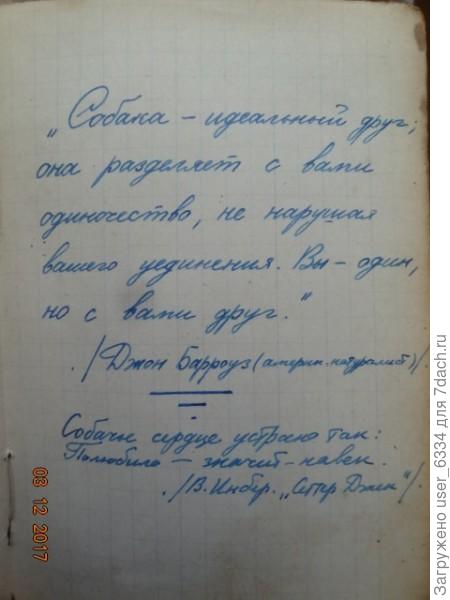 „Собака – идеальный друг;
она разделяет с вами
одиночество, не нарушая
вашего уединения. Вы – один,
но с вами друг."
/Джон Барроуз (америк. натуралист)/.
Собачье сердце устроено так:
Полюбило – значит – навек.
/В. Инбер. „Сеттер Джек"/.
03 12 2017
Загружено user_6334 для 7dach.ru